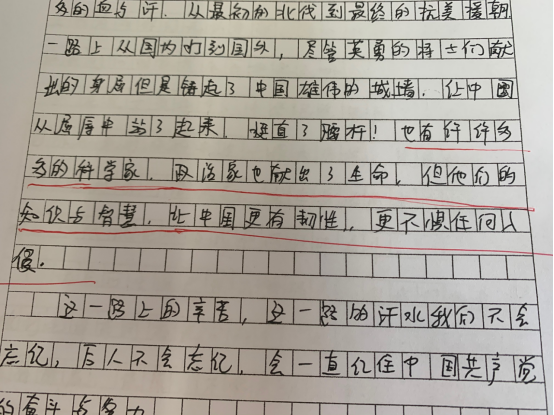 多的血与汗.从最初的北伐到最终的抗美援朝.
一路上从国内打到国外,尽管英勇的将士们献
出的身居但是铸起了中国雄伟的城墙.让中国
从屈辱中站了起来.挺直了腰杆!也有许许多
多的科学家.政治家也献出了生命.但他们的
知识与智慧.让中国更有韧性,更不惧任何入
侵.
这一路上的辛苦,这一路的汗水我们不会
忘记,后人不会忘记,会一直纪住中国共产党
的奋斗与努力